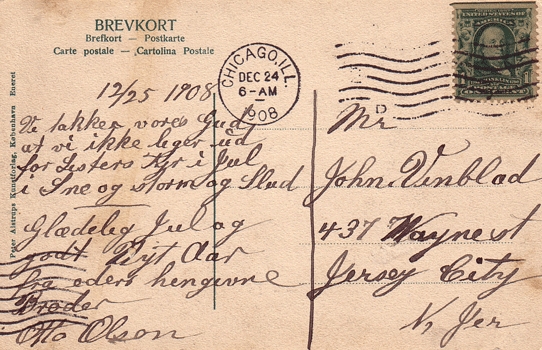 BREVKORT
Brefkort — Postkarte
Carte postale — Cartolina Postale
Peter Alstrups Kunstforlag, København Eneret
CHICAGO, ILL.
DEC 24
6-AM
1908
D
UNITED STATES OF
AMERICA
POSTAGE
12/25 1908
Vi takker vores Gud
at vi ikke liger ud
for Lysters Fyr i Jul
i Sne og storm og Slud
Glædelig Jul og
godt Nyt Aar
fra eders hengivne
Broder
Otto Olson
Mr
John. Vinblad
437 Wayne st
Jersey City
N, Jer